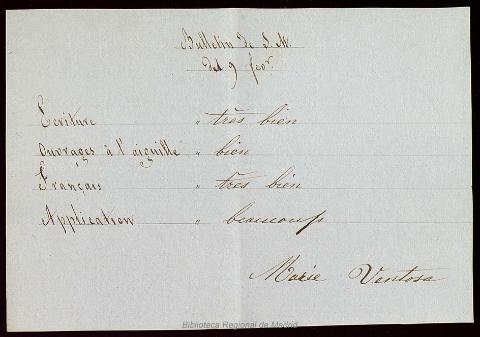 Bulletin de S. M.
del 9 fevr.
Ecriture " très bien
Ouvrages à l'aiguille " bien
Français " très bien
Application " beaucoup
Marie Ventosa
Biblioteca Regional de Madrid